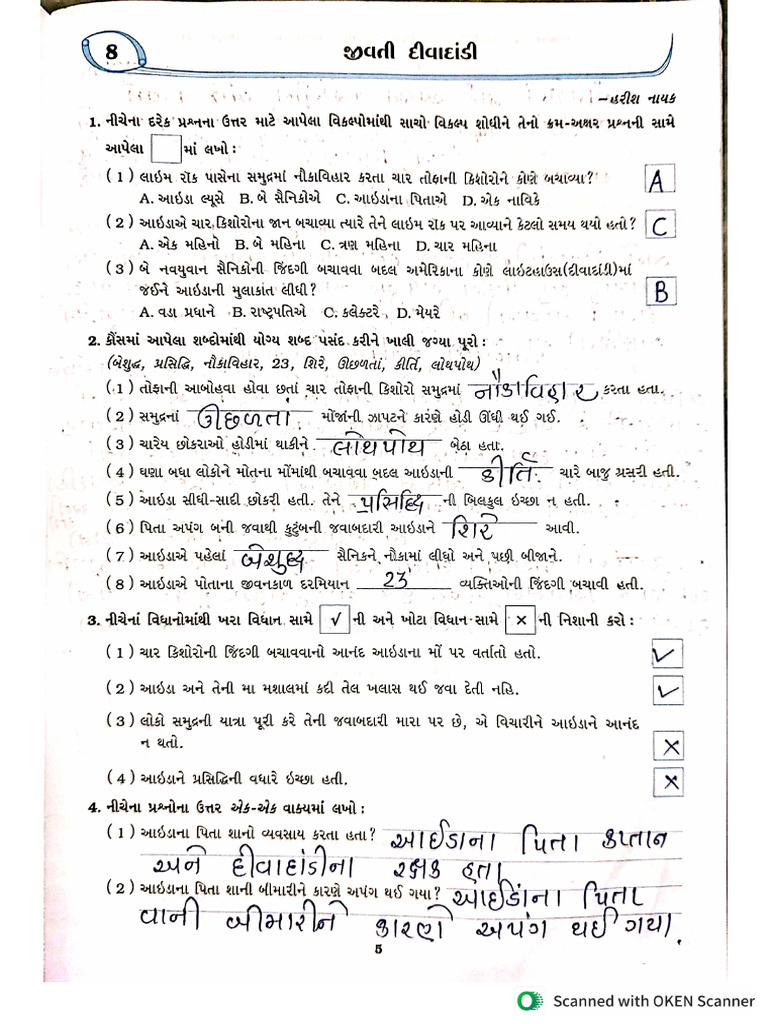 8
જીવતી દીવાદાંડી
–હરીશ નાયક
1. નીચેના દરેક પ્રશ્નના ઉત્તર માટે આપેલા વિકલ્પોમાંથી સાચો વિકલ્પ શોધીને તેનો ક્રમ-અક્ષર પ્રશ્નની સામે
આપેલા માં લખો :
(1) લાઇમ રૉક પાસેના સમુદ્રમાં નૌકાવિહાર કરતા ચાર તોફાની કિશોરોને કોણે બચાવ્યા? A
A. આઇડા લ્યૂસે B. બે સૈનિકોએ C. આઇડાના પિતાએ D. એક નાવિકે
(2) આઇડાએ ચાર કિશોરોના જાન બચાવ્યા ત્યારે તેને લાઇમ રૉક પર આવ્યાને કેટલો સમય થયો હતો? C
A. એક મહિનો B. બે મહિના C. ત્રણ મહિના D. ચાર મહિના
(3) બે નવયુવાન સૈનિકોની જિંદગી બચાવવા બદલ અમેરિકાના કોણે લાઇટહાઉસ(દીવાદાંડી)માં
જઈને આઇડાની મુલાકાત લીધી? B
A. વડા પ્રધાને B. રાષ્ટ્રપતિએ C. કલેક્ટરે D. મેયરે
2. કૌંસમાં આપેલા શબ્દોમાંથી યોગ્ય શબ્દ પસંદ કરીને ખાલી જગ્યા પૂરો :
(બેશુદ્ધ, પ્રસિદ્ધિ, નૌકાવિહાર, 23, શિરે, ઊછળતાં, કીર્તિ, લોથપોથ)
(1) તોફાની આબોહવા હોવા છતાં ચાર તોફાની કિશોરો સમુદ્રમાં નૌકાવિહાર કરતા હતા.
(2) સમુદ્રનાં ઊછળતાં મોંજાંની ઝાપટને કારણે હોડી ઊંધી થઈ ગઈ.
(3) ચારેય છોકરાઓ હોડીમાં થાકીને લોથપોથ બેઠા હતા.
(4) ઘણા બધા લોકોને મોતના મોંમાંથી બચાવવા બદલ આઇડાની કીર્તિ ચારે બાજુ પ્રસરી હતી.
(5) આઇડા સીધી-સાદી છોકરી હતી. તેને પ્રસિદ્ધિ ની બિલકુલ ઇચ્છા ન હતી.
(6) પિતા અપંગ બની જવાથી કુટુંબની જવાબદારી આઇડાને શિરે આવી.
(7) આઇડાએ પહેલાં બેશુદ્ધ સૈનિકને નૌકામાં લીધો અને પછી બીજાને.
(8) આઇડાએ પોતાના જીવનકાળ દરમિયાન 23 વ્યક્તિઓની જિંદગી બચાવી હતી.
3. નીચેનાં વિધાનોમાંથી ખરા વિધાન સામે ✓ ની અને ખોટા વિધાન સામે × ની નિશાની કરો :
(1) ચાર કિશોરોની જિંદગી બચાવવાનો આનંદ આઇડાના મોં પર વર્તાતો હતો. ✓
(2) આઇડા અને તેની મા મશાલમાં કદી તેલ ખલાસ થઈ જવા દેતી નહિ. ✓
(3) લોકો સમુદ્રની યાત્રા પૂરી કરે તેની જવાબદારી મારા પર છે, એ વિચારીને આઇડાને આનંદ
ન થતો. ×
(4) આઇડાને પ્રસિદ્ધિની વધારે ઇચ્છા હતી. ×
4. નીચેના પ્રશ્નોના ઉત્તર એક-એક વાક્યમાં લખો :
(1) આઇડાના પિતા શાનો વ્યવસાય કરતા હતા? આઈડાના પિતા કપ્તાન
અને દીવાદાંડીના રક્ષક હતા
(2) આઇડાના પિતા શાની બીમારીને કારણે અપંગ થઈ ગયા? આઈડાના પિતા
વાની બીમારીને કારણે અપંગ થઈ ગયા.
5
Scanned with OKEN Scanner